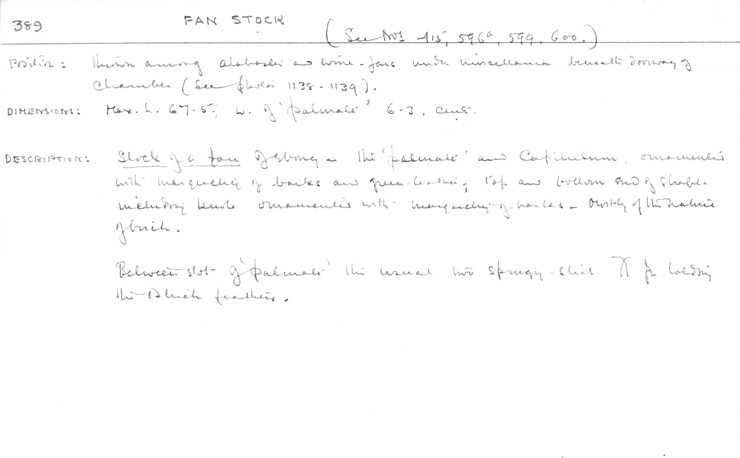 389 FAN STOCK (See Nos 415, 596a, 599, 600.)
Position: thrown among alabaster and wine-jars with miscellanea beneath doorway of
chamber (See photos 1138-1139).
DIMENSIONS: Max. L. 67.5; W. of 'palmate' 6-3, cent.
DESCRIPTION: Stock of a fan of ebony - the 'palmate' and Capitulum, ornamented
with marquetry of barks and green leather, top and bottom end of shaft
including knob ornamented with marquetry of barks - mostly of the nature
of birch.
Between slot of 'palmate' the usual two springy sticks for holding
the feathers.